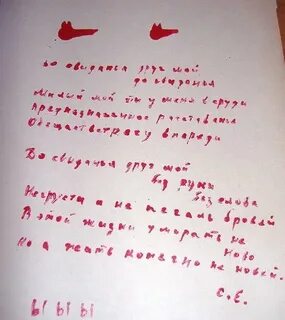 во свиданья друг мой
до свиданья
Милый мой ты у меня в груди
Предназначенное расставанья
Обещает встречу впереди
Во свиданья друг мой
без руки
без слова
Негрусти а не печаль бровей
В этой жизни умирать не
ново
Но а жить конечно не новей.
С. Е.
Ы Ы Ы